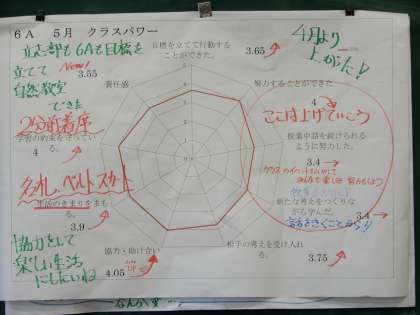 6A 5月 クラスパワー
立志部も6Aも目標を
立てて New!
自然教室
できた
2分前着席
4月より
上がった!
目標を立てて行動する
ことができた。
3.65
努力することができた
4
ここは上げていこう
授業中話を続けられる
ように努力した。
3.4
新たな考えをつくりな
がら学んだ。
3.4
相手の考えを受け入れ
る。
3.75
協力・助け合い
4.05 UP
生活のきまりをまも
る。
3.9
名札、ベルト、スカート
学習の約束を守ってい
る。
4
責任感
3.55
協力をして
楽しい生活
にしたいね